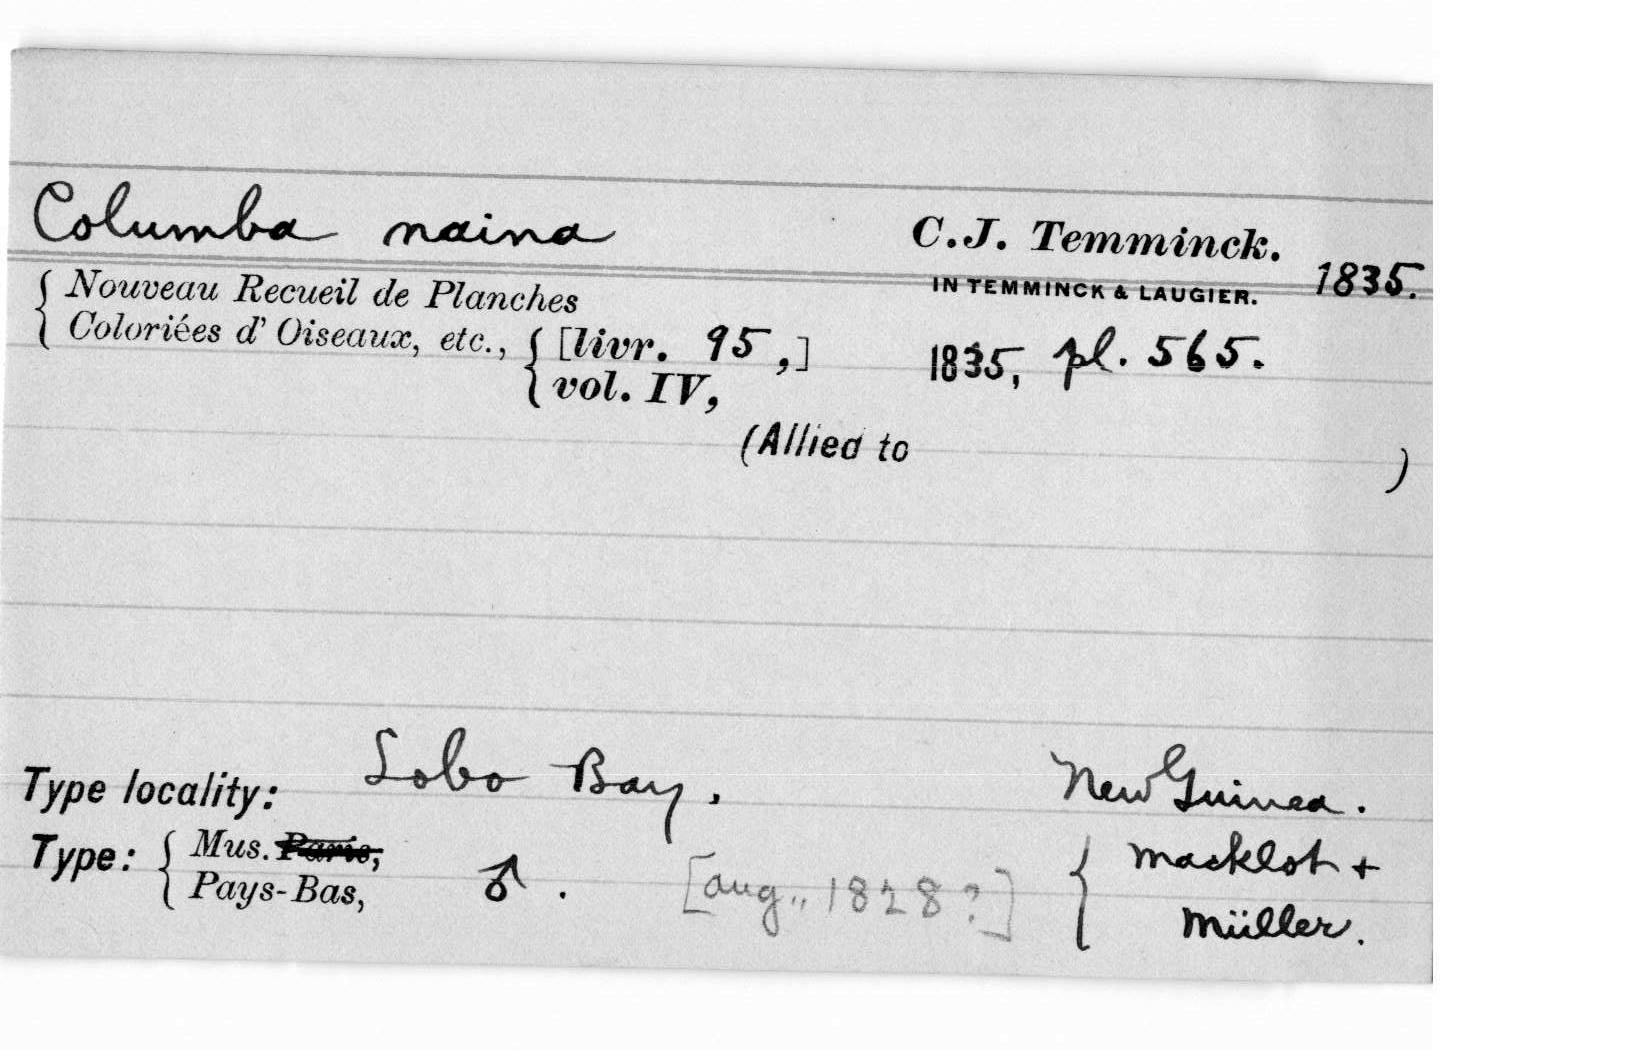 Columba naina C.J. Temminck.
IN TEMMINCK & LAUGIER. 1835.
{ Nouveau Recueil de Planches
Coloriées d' Oiseaux, etc., { [livr. 95,] 1835, pl. 565.
vol. IV,
(Allied to )
Type locality: Lobo Bay. New Guinea.
Type: { Mus. Paris, ♂. [Aug., 1828?] { Macklot +
Pays-Bas, Müller.